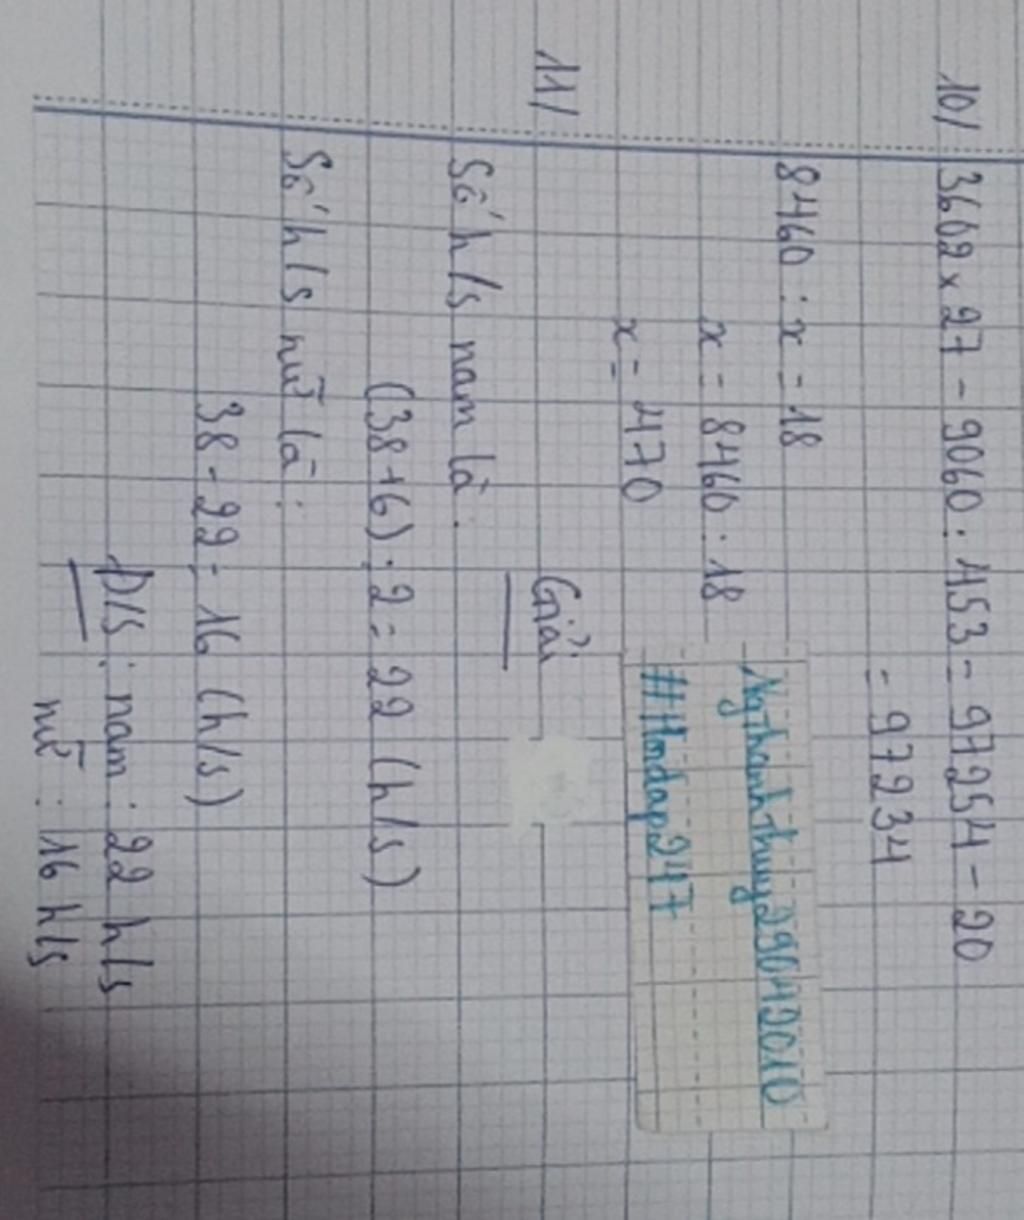 10/ 3602 x 27 - 9060 : 453 = 97254 - 20
= 97234
8460 : x = 18
x = 8460 : 18
x = 470
Ngthanhthuy29042010
#Hoidap247
11/
Giải
Số h/s nam là :
(38+6) : 2 = 22 (h/s)
Số h/s nữ là :
38 - 22 = 16 (h/s)
Đ/S : nam : 22 h/s
nữ : 16 h/s